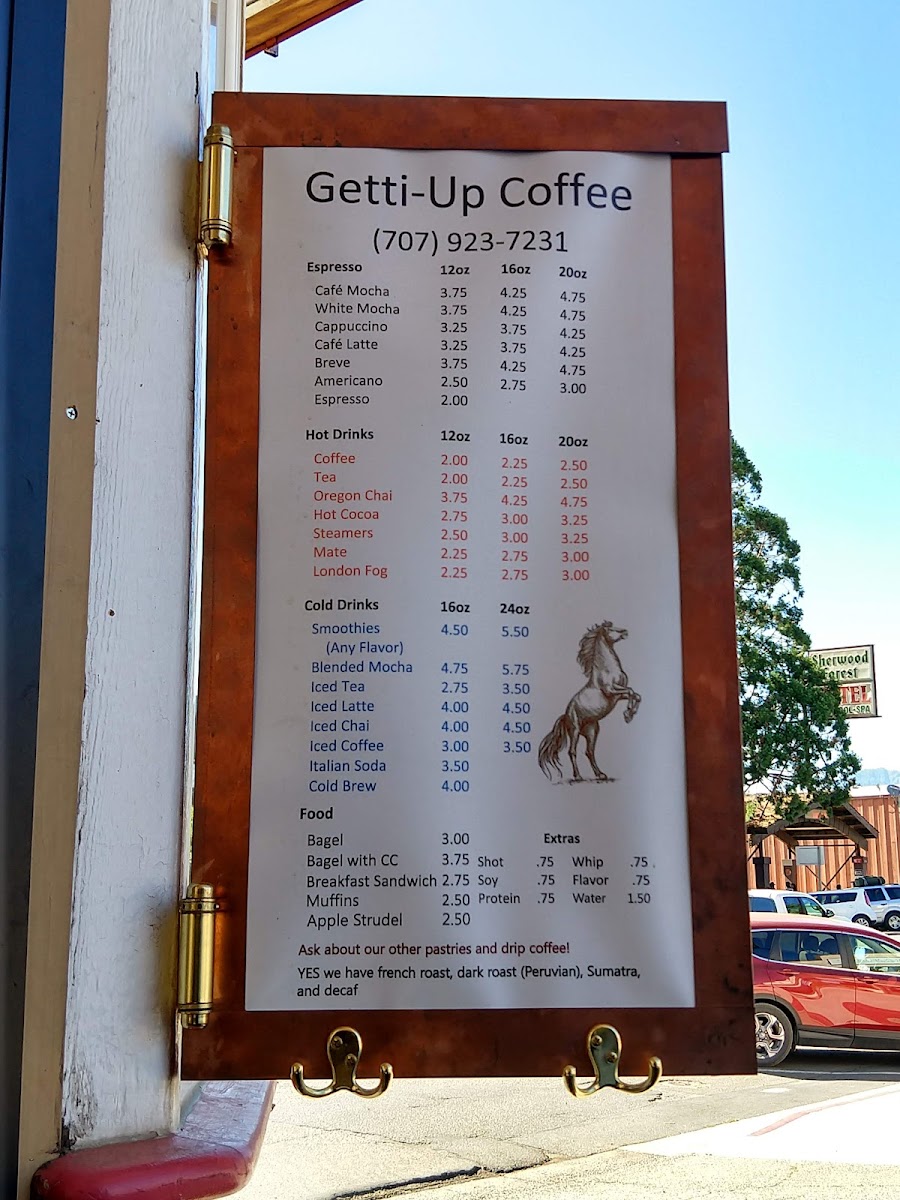 Getti-Up Coffee
(707) 923-7231
Espresso 12oz 16oz 20oz
Café Mocha 3.75 4.25 4.75
White Mocha 3.75 4.25 4.75
Cappuccino 3.25 3.75 4.25
Café Latte 3.25 3.75 4.25
Breve 3.75 4.25 4.75
Americano 2.50 2.75 3.00
Espresso 2.00
Hot Drinks 12oz 16oz 20oz
Coffee 2.00 2.25 2.50
Tea 2.00 2.25 2.50
Oregon Chai 3.75 4.25 4.75
Hot Cocoa 2.75 3.00 3.25
Steamers 2.50 3.00 3.25
Mate 2.25 2.75 3.00
London Fog 2.25 2.75 3.00
Cold Drinks 16oz 24oz
Smoothies 4.50 5.50
(Any Flavor)
Blended Mocha 4.75 5.75
Iced Tea 2.75 3.50
Iced Latte 4.00 4.50
Iced Chai 4.00 4.50
Iced Coffee 3.00 3.50
Italian Soda 3.50
Cold Brew 4.00
Food
Bagel 3.00
Bagel with CC 3.75
Breakfast Sandwich 2.75
Muffins 2.50
Apple Strudel 2.50
Extras
Shot .75 Whip .75
Soy .75 Flavor .75
Protein .75 Water 1.50
Ask about our other pastries and drip coffee!
YES we have french roast, dark roast (Peruvian), Sumatra,
and decaf
Sherwood
Forest